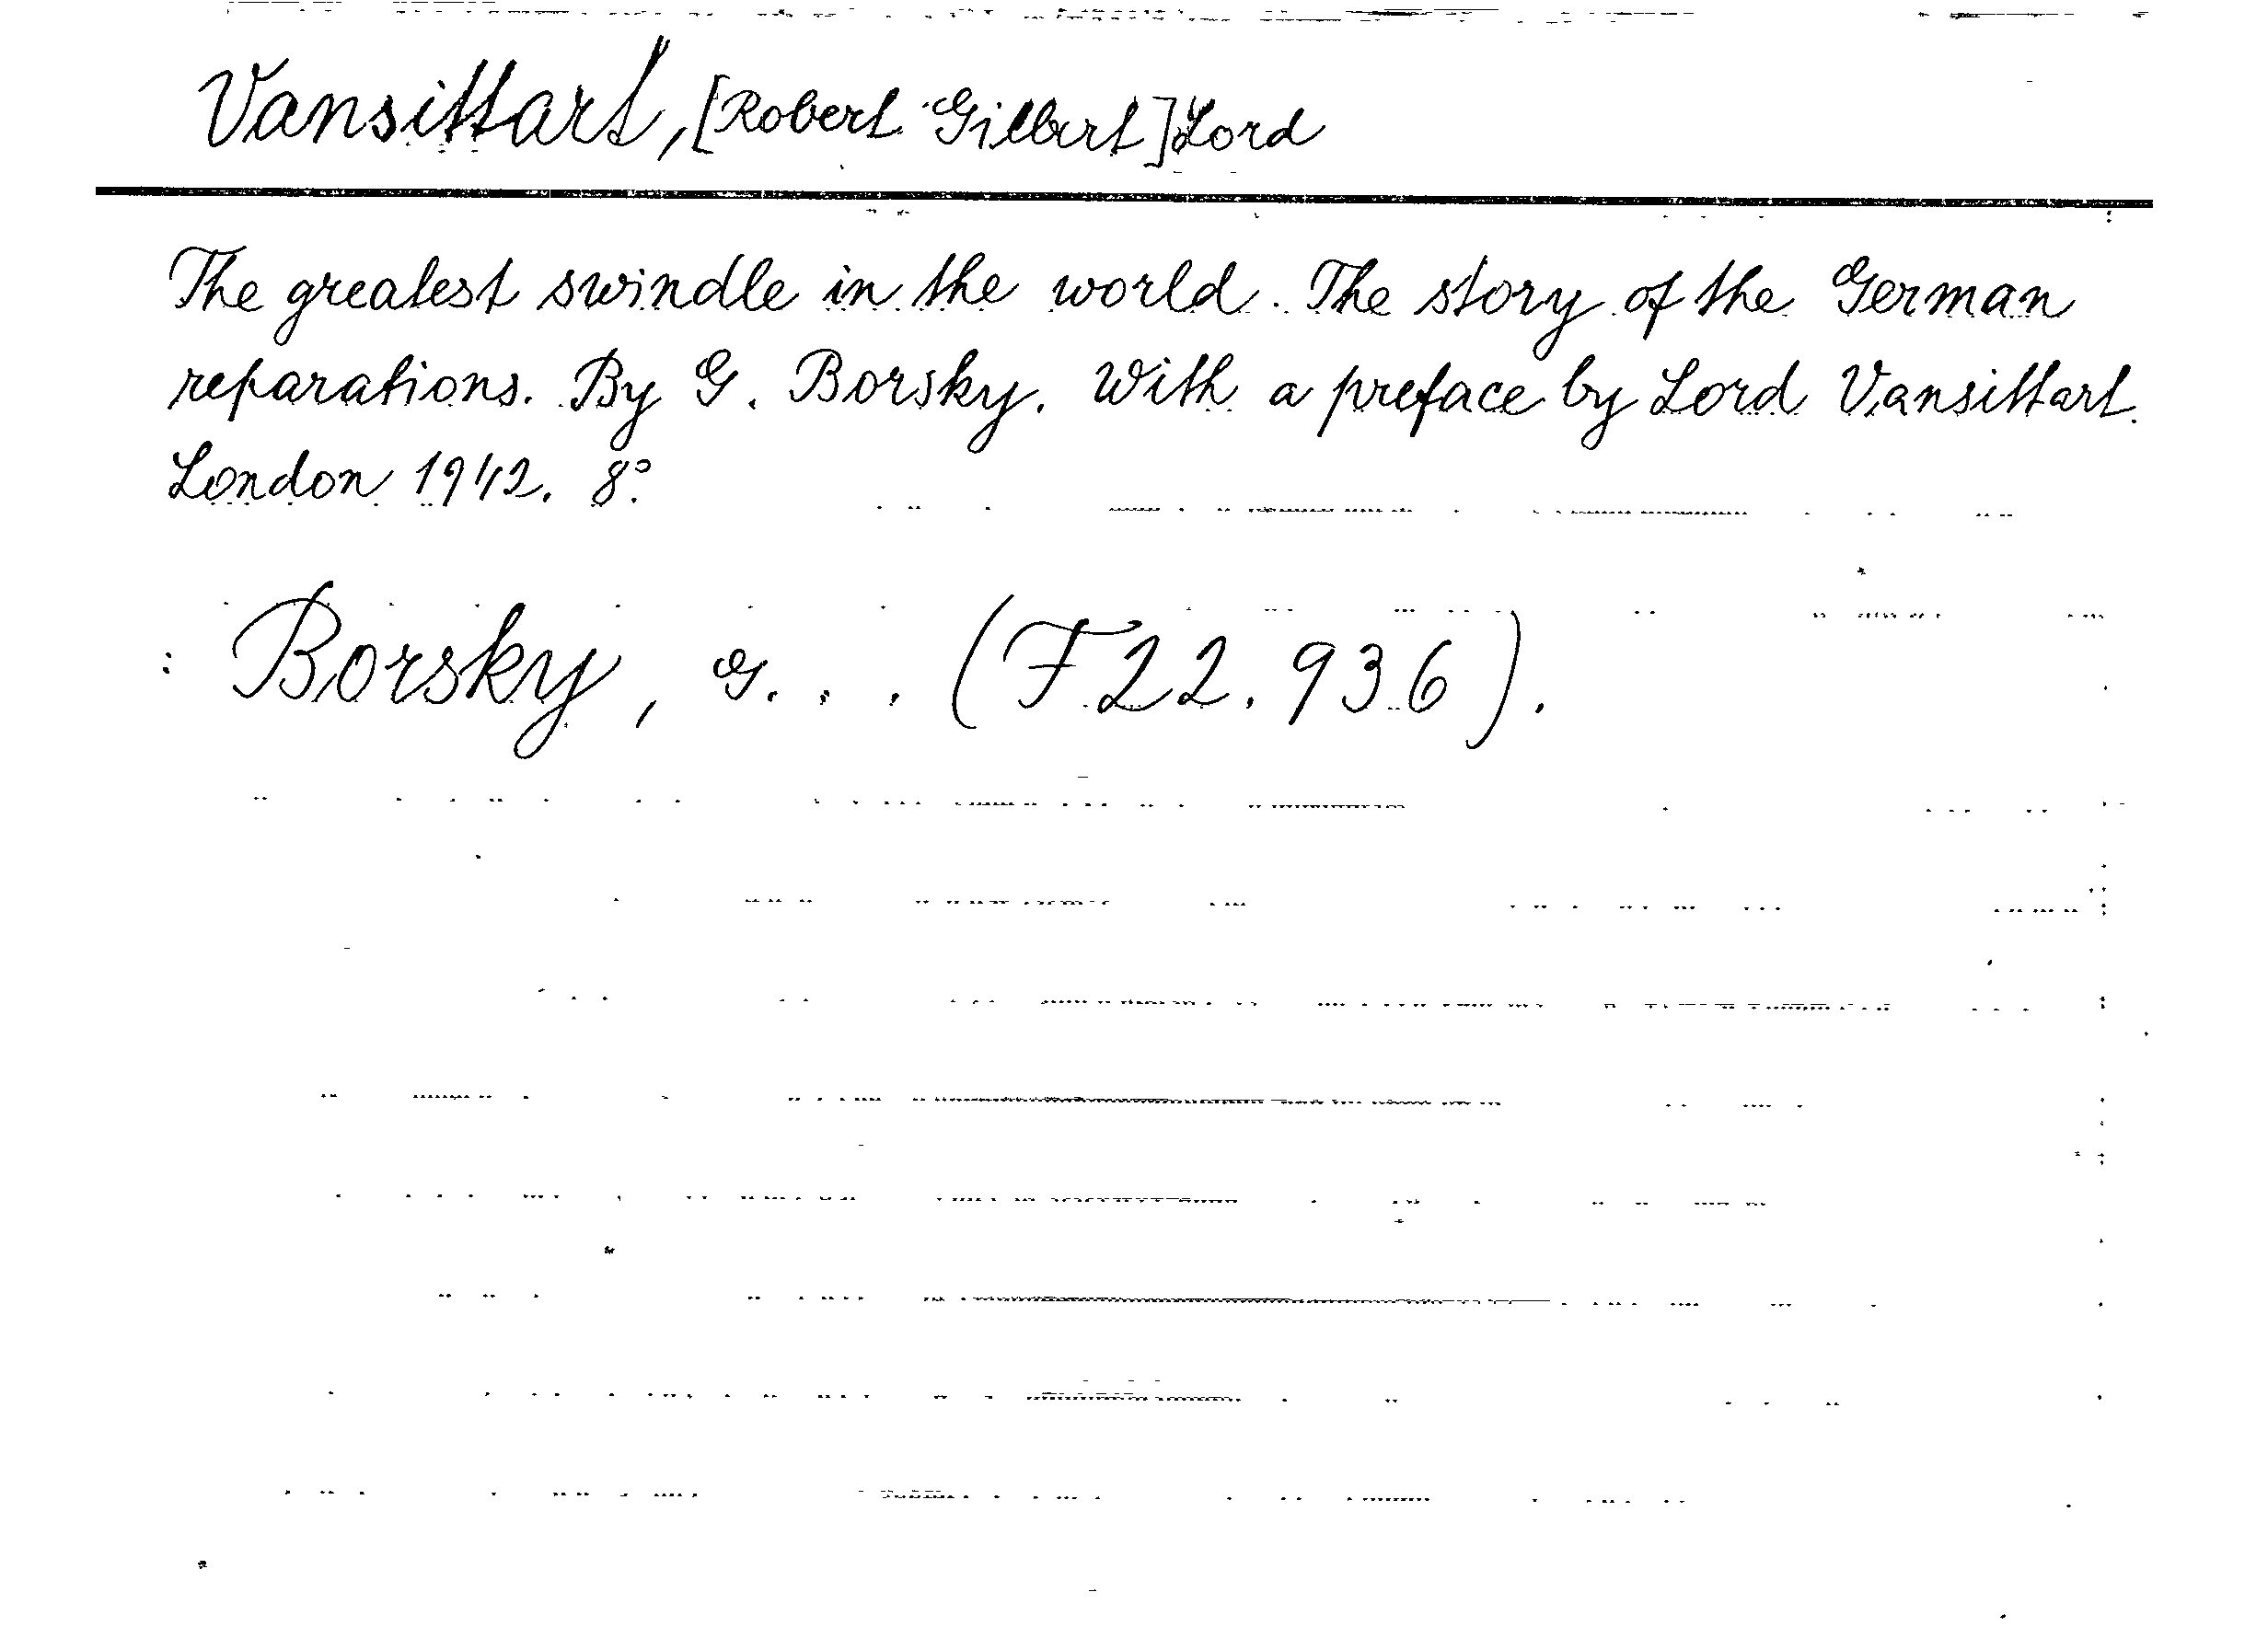 Vansittart, [Robert Gilbert] Lord
The greatest swindle in the world. The story of the German
reparations. By G. Borsky. With a preface by Lord Vansittart.
London 1942. 8°.
: Borsky, G. . . (F 22.936).